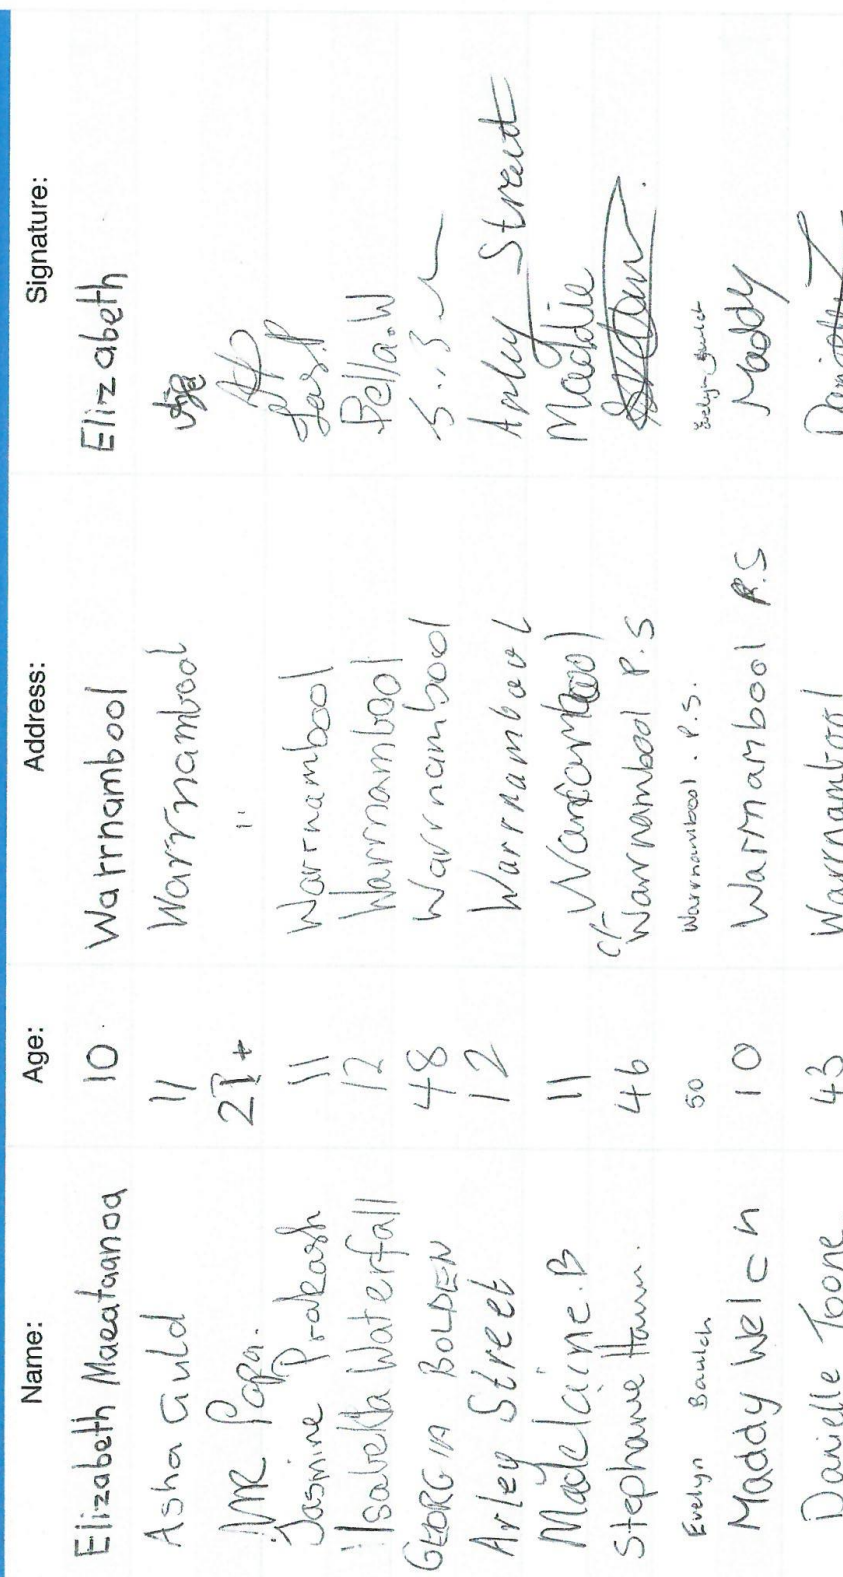 Name: Age: Address: Signature:
Elizabeth Maeataanoa 10 Warrnambool Elizabeth
Asha Guld 11 Warrnambool
MR Papa. 21+ "
Jasmine Prakash 11 Warrnambool Jas.P
Isabella Waterfall 12 Warrnambool Bella.W
GEORGIA BOLDEN 48 Warrnambool
Arley Street 12 Warrnambool Arley Street
Madelaine.B 11 Warrnambool Maddie
Stephanie Hann. 46 c/- Warrnambool P.S
Evelyn Baulch 50 Warrnambool. P.S. Evelyn Baulch
Maddy Welch 10 Warrnambool P.S Maddy
Danielle Toone 43 Warrnambool